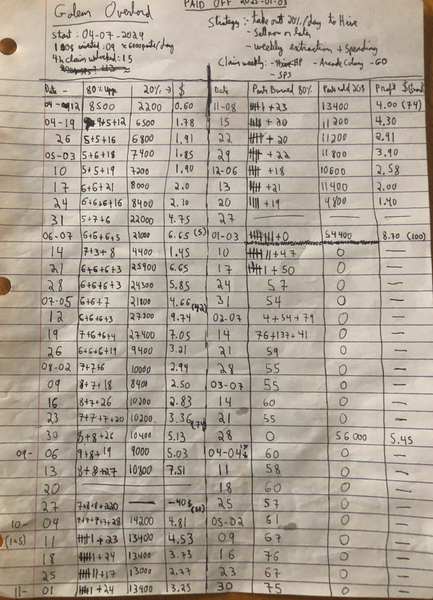 Golem Overlord
PAID OFF 2025-01-03
Start : 04-07-2024
Strategy : - take out 20% / day to Hive
- Sell now or later
- weekly extraction + spending
Claim weekly : - Hive - Arcade Colony - GO
- SPS
Date 80% upp. 20% $ Date Parts Burned 80% Parts sold 20% Profit $
12 8500 2200 0.60 11-08 + 23 13400 4.00 (74)
04-19 5+12 6500 1.78 15 + 20 11200 4.30
26 5+5+16 6800 1.91 22 + 20 11200 2.91
05-03 5+6+18 7400 1.85 29 + 22 11800 3.90
10 5+5+19 7200 1.90 12-06 + 18 10600 2.58
17 6+6+21 8000 2.0 13 + 21 11400 2.00
24 6+6+6+16 8400 2.10 20 + 19 4800 1.40
31 5+7+6 22000 4.75 27 — — —
06-07 6+6+6+5 21000 6.65 (5) 01-03 + 0 54400 8.70 (100)
14 7+3+8 4400 1.45 10 11 + 47 0 —
21 6+6+6+3 25900 6.65 17 1 + 50 0 —
28 6+6+6+3 24300 5.85 24 57 0 —
07-05 6+6+7 21100 4.66 (42) 31 54 0 —
12 6+6+6+3 27300 9.74 02-07 4+54+79 0 —
19 7+6+6+4 27400 7.05 14 76+137+41 0 —
26 6+6+6+19 9400 3.21 21 59 0 —
08-02 7+7+6 10000 2.99 28 55 0 —
09 8+7+18 8400 2.50 03-07 55 0 —
16 8+7+26 10200 2.83 14 60 0 —
23 7+7+7+20 10200 3.36 21 55 0 —
30 8+8+26 10400 5.13 28 0 56000 5.45
09- 06 9+8+19 9000 5.03 04-04 60 0 —
13 8+8+27 10800 7.51 11 58 0 —
20 — — — 18 60 0 —
27 7+8+8+220 — -40$ 25 57 0 —
10- 04 +28 14200 4.81 05-02 61 0 —
11 1 + 23 13400 4.53 09 67 0 —
18 1 + 24 13400 3.73 16 76 0 —
25 11 + 17 13000 2.77 23 67 0 —
11- 01 1 + 24 13400 3.25 30 75 0 —